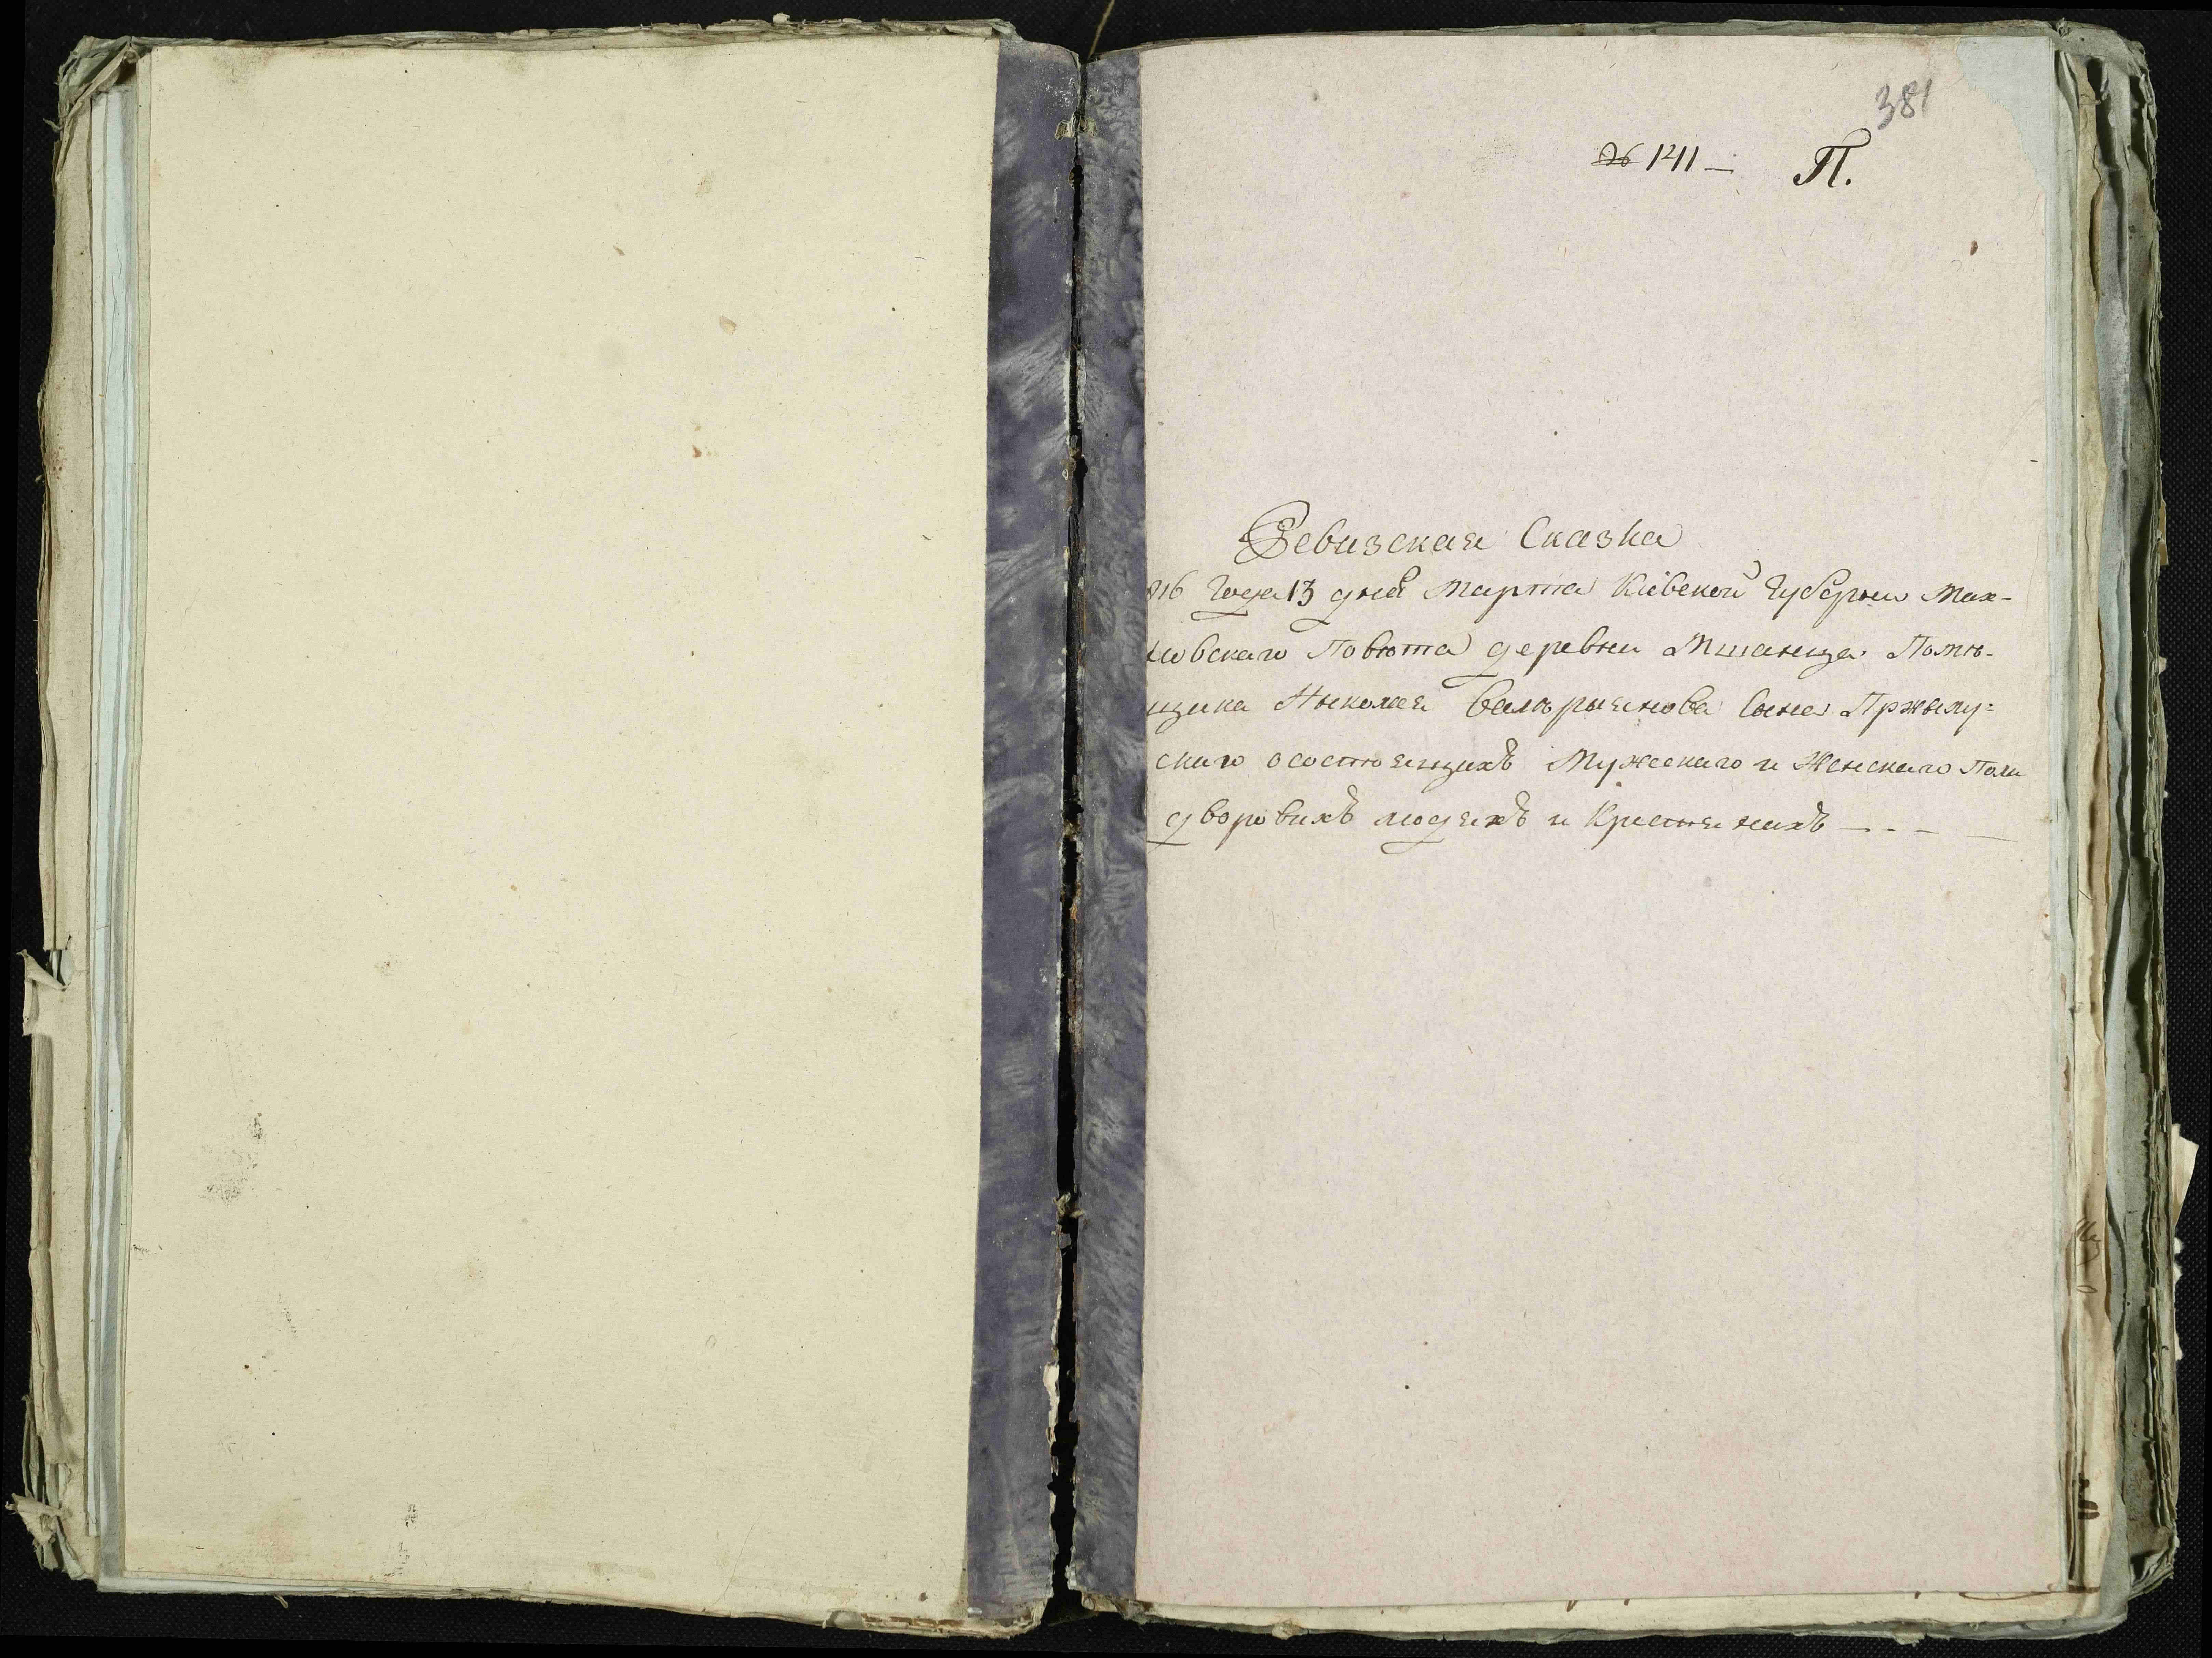 381
№ 141 - П.
Ревизская Сказка
816 Года 13 дня Марта Киевской Губернии Мах-
новскаго Повѣта деревни Мшанца Помѣ-
щика Николая Валѣрыянова Сына Пржылу=
скаго осостоящихъ Мужескаго и Женскаго Пола
дворовихъ людяхъ и Крестянахъ - - - -